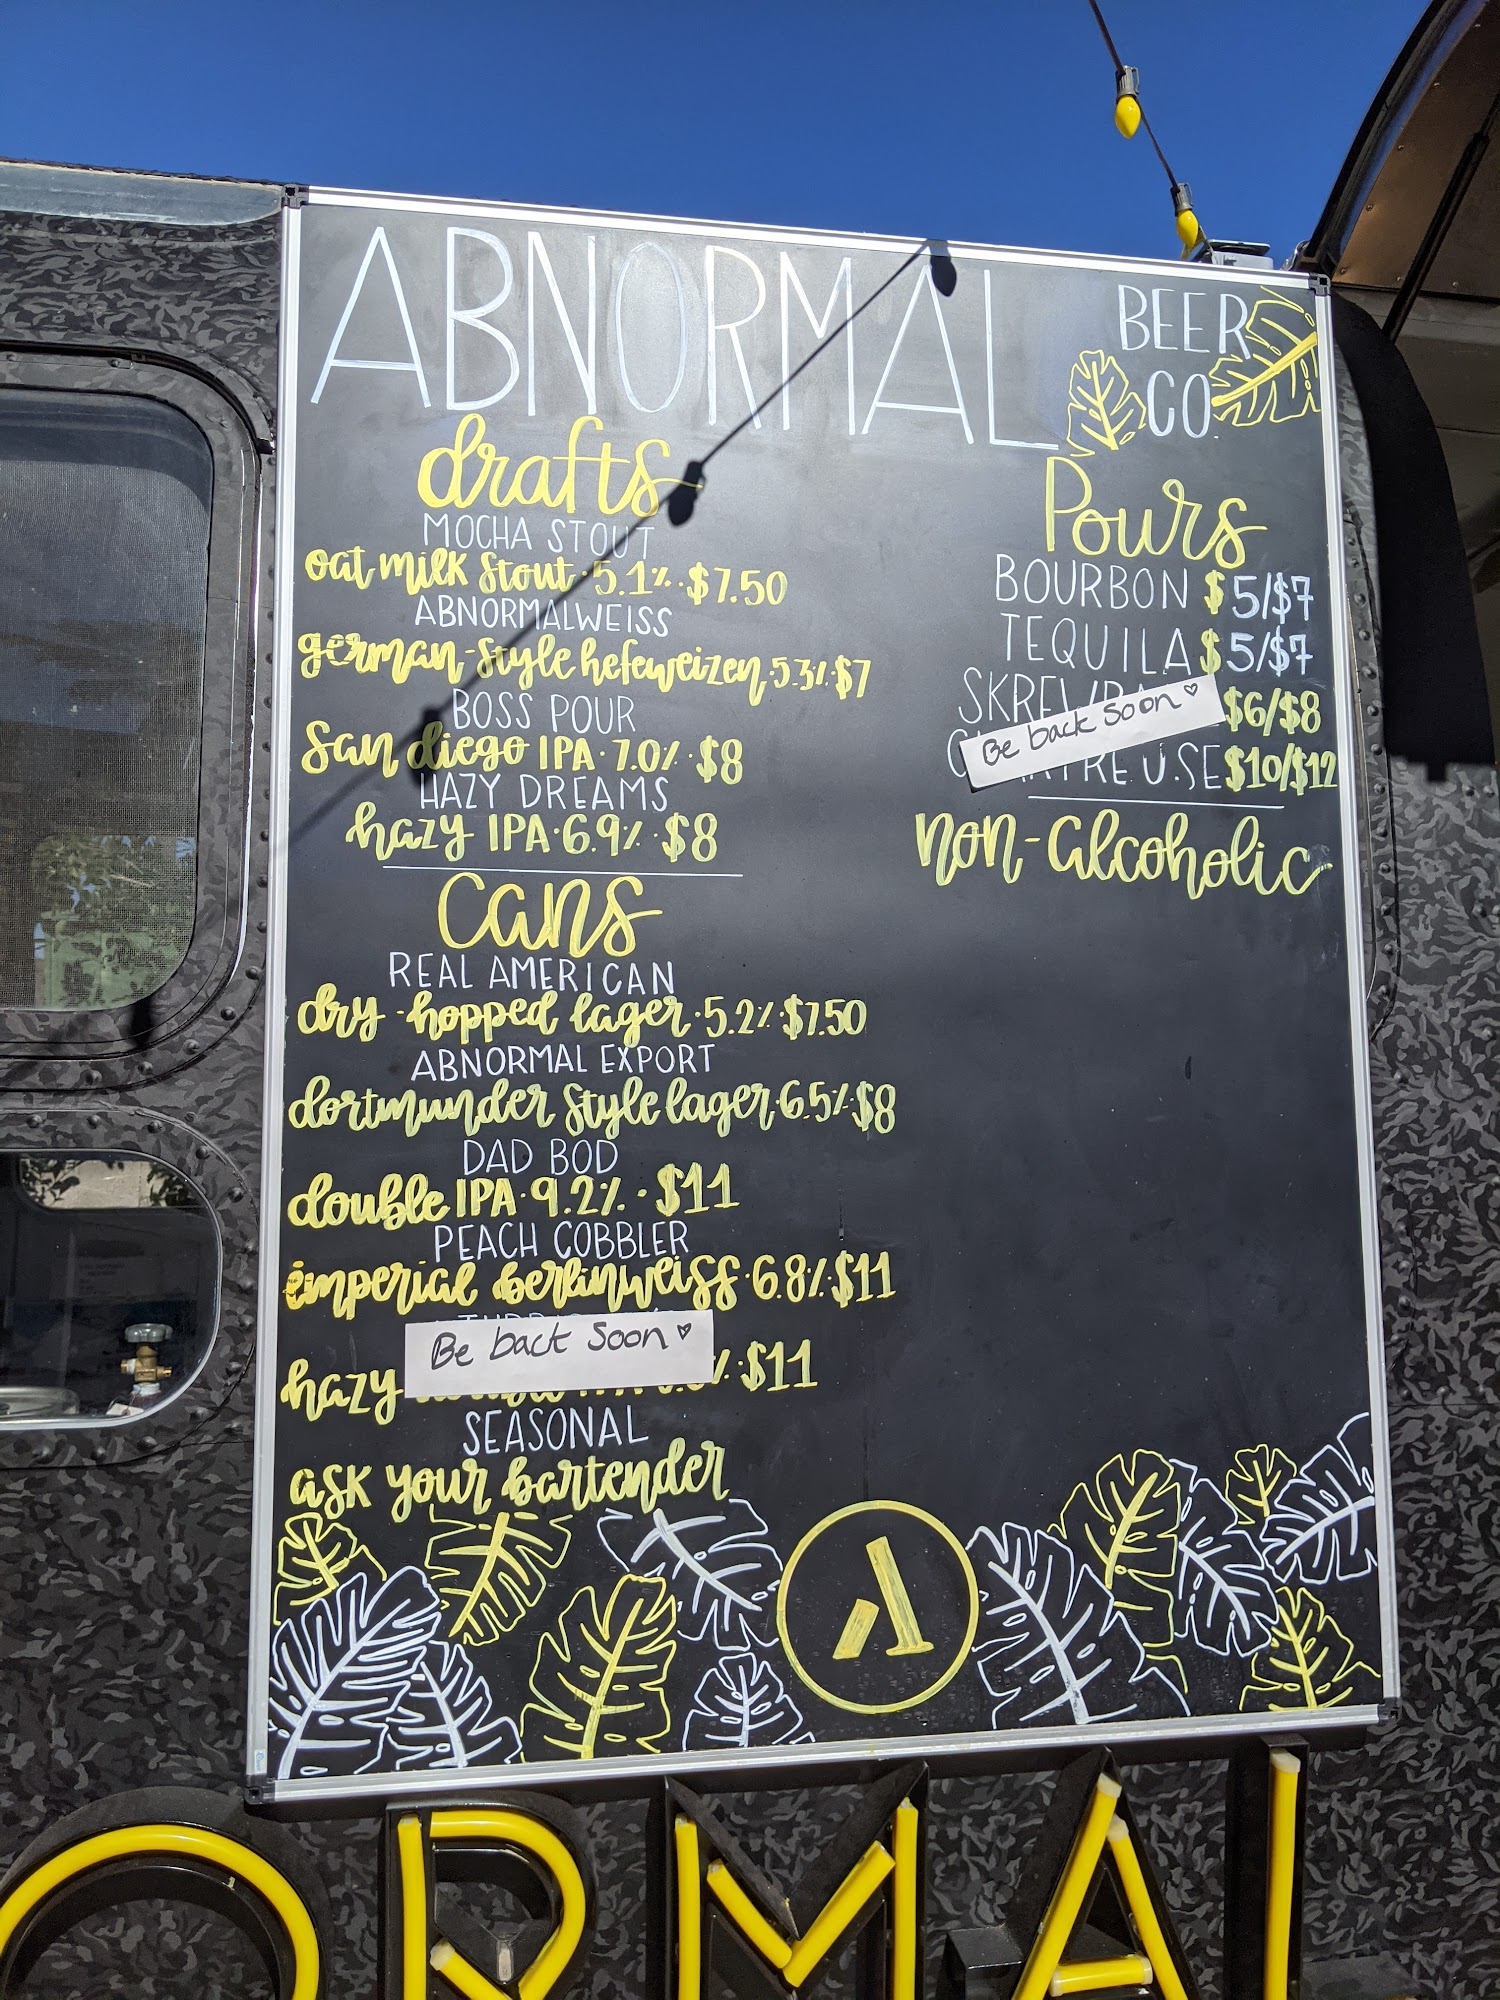 ABNORMAL
BEER
CO.
drafts
MOCHA STOUT
oat milk stout · 5.1% · $7.50
ABNORMALWEISS
german-style hefeweizen · 5.3% · $7
BOSS POUR
San diego IPA · 7.0% · $8
HAZY DREAMS
hazy IPA · 6.9% · $8
cans
REAL AMERICAN
dry-hopped lager · 5.2% · $7.50
ABNORMAL EXPORT
dortmunder style lager · 6.5% · $8
DAD BOD
double IPA · 9.2% · $11
PEACH COBBLER
imperial berlinweiss · 6.8% · $11
Be back Soon
hazy % · $11
SEASONAL
ask your bartender
Pours
BOURBON $5/$7
TEQUILA $5/$7
$6/$8
Be back Soon
$10/$12
non-alcoholic
ORMAL